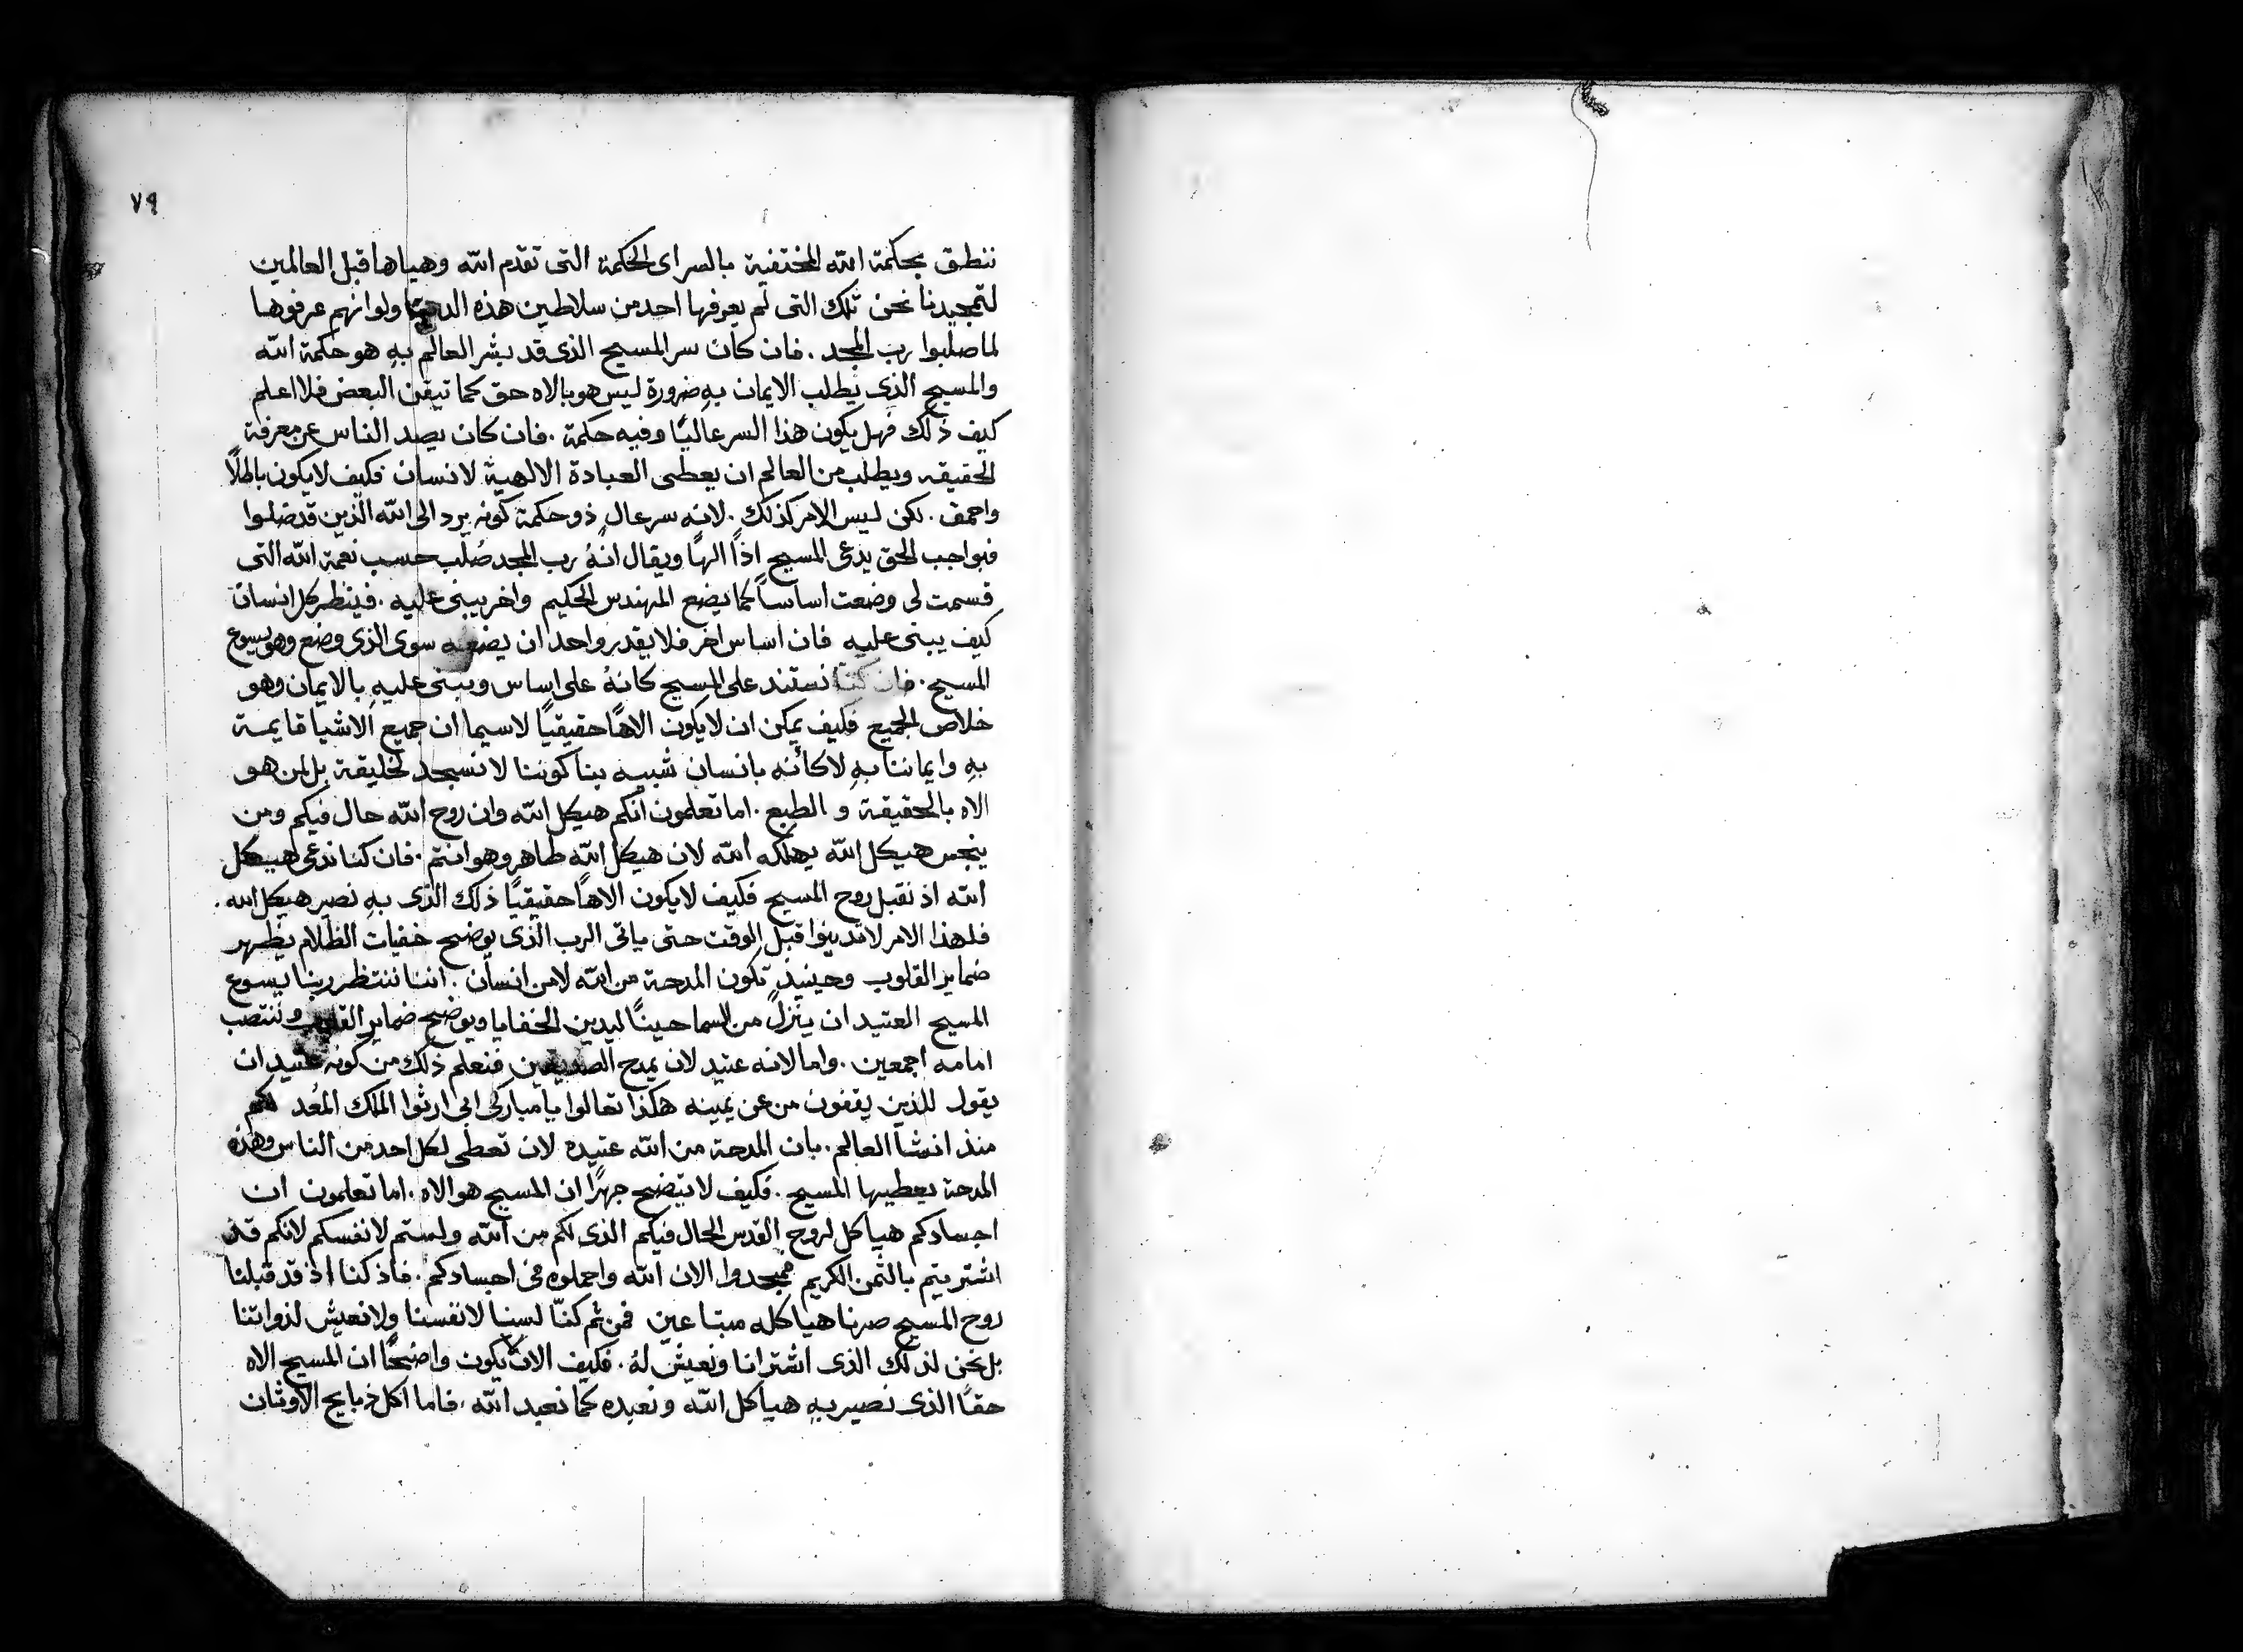 ٧٩
ننطق بحكمة الله المختفية بالسر اى الحكمة التى تقدم الله وهياها قبل العالمين
لتمجيدنا نحن تلك التى لم يعرفها احد من سلاطين هذه ولو انهم عرفوها
لما صلبوا رب المجد. فان كان سر المسيح الذى قد بشر العالم بهِ هو حكمة الله
والمسيح الذى يطلب الايمان بهِ ضرورة ليس هو بالاه حق كما تيقن البعض فلا اعلم
كيف ذلك فهل يكون هذا السر عاليًا وفيه حكمة. فان كان يصد الناس عن معرفة
الحقيقه ويطلب من العالم ان يعطى العبادة الالهية لانسان فكيف لا يكون باطلًا
واحمق. لكن ليس الامر كذلك. لانه سر عالٍ ذو حكمة كونه يرد الى الله الذين قد ضلوا
فبواجب الحق يدعى المسيح اذًا الهًا ويقال انهُ رب المجد صُلب حسب نعمة الله التى
قسمت لى وضعت اساسًا كما يضع المهندس الحكيم واخر يبنى عليه. فينظر كل انسان
كيف يبنى عليه فان اساس اخر فلا يقدر واحد ان يضعه سوى الذى وضع وهو يسوع
المسيح. فان كنا نستند على المسيح كانهُ على اساس ونبنى عليهِ بالايمان وهو
خلاص الجميع فكيف يمكن ان لا يكون الاهًا حقيقيًا لاسيما ان جميع الاشيا قايمة
بهِ وايماننا بهِ لا كأنه بانسان شبيه بنا كوننا لا نسجد لخليقة بل لمن هو
الاه بالحقيقة و الطبع. اما تعلمون انكم هيكل الله وان روح الله حال فيكم ومن
ينجس هيكل الله يهلكه الله لان هيكل الله طاهر وهو انتم. فان كنا ندعى هيكل
الله اذ نقبل روح المسيح فكيف لا يكون الاهًا حقيقيًا ذلك الذى بهِ نصير هيكل الله.
فلهذا الامر لا تدينوا قبل الوقت حتى ياتى الرب الذى يوضح خفيات الظلام يظهر
ضماير القلوب وحينيذٍ تكون المدحة من الله لا من انسان. اننا ننتظر ربنا يسوع
المسيح العتيد ان ينزل من السما حينًا ليدين الخفايا ويوضح ضماير القلوب وننتصب
امامه اجمعين. واما لانه عتيد لان يمدح الصديقين فنعلم ذلك من كونه عتيد ان
يقول للذين يقفون من عن يمينه هكذا تعالوا يا مباركى ابى ارثوا الملك المُعد لكم
منذ انشآ العالم. بان المدحة من الله عتيده لان تعطى لكل احد من الناس وهذه
المدحة يعطيها المسيح. فكيف لا يتضح جهرًا ان المسيح هو الاه. اما تعلمون ان
اجسادكم هياكل لروح القدس الحال فيكم الذى لكم من الله ولستم لانفسكم لانكم قد
اشتريتم بالثمن الكريم فمجدوا الان الله واحملوه فى اجسادكم. فاذ كنا اذ قد قبلنا
روح المسيح صرنا هياكله مبتاعين فمن ثم كنّا لسنا لانفسنا ولا نعيش لذواتنا
بل نحن لذلك الذى اشترانا ونعيش لهُ. فكيف الان لا يكون واضحًا ان المسيح الاه
حقًا الذى نصير بهِ هياكل الله ونعبده كما نعبد الله. فاما اكل ذبايح الاوثان